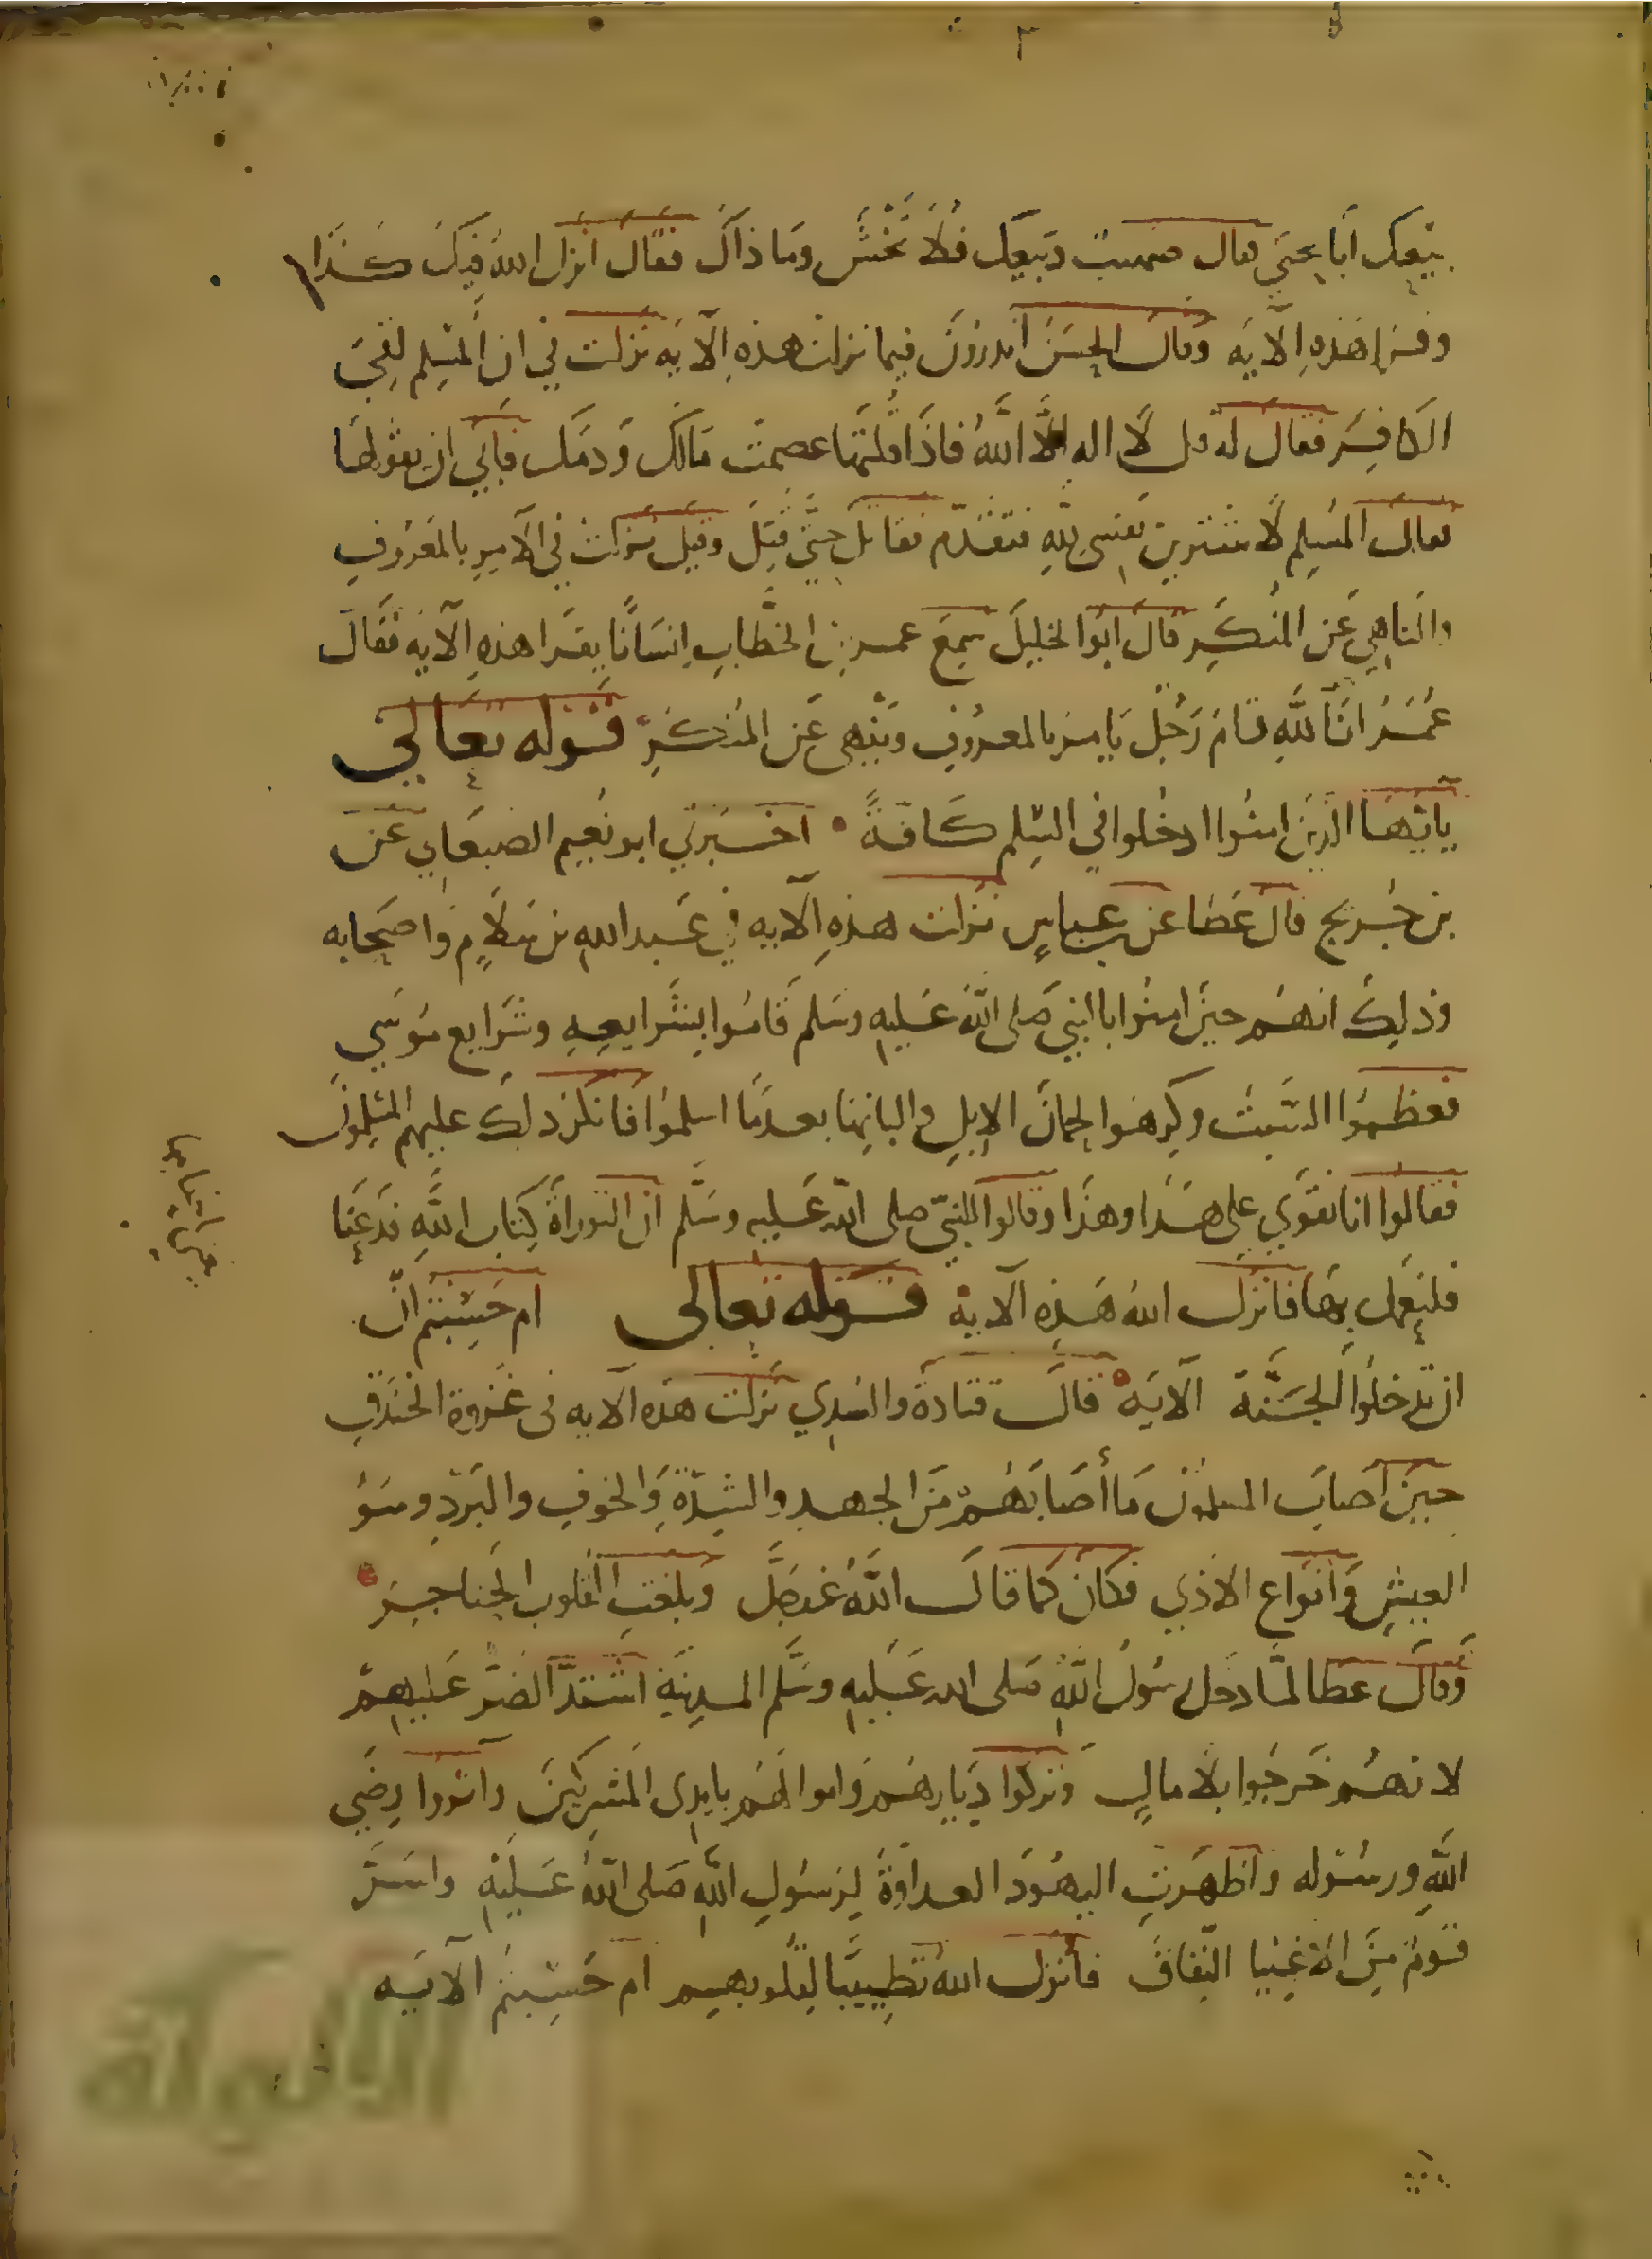 بيعك ابا يحيى فقال صهيب وبيعك فلا تخش وما ذاك فقال انزل الله فيك كذا
وقرا هذه الآية وقال الحسن اتدرون فيما نزلت هذه الآية نزلت في ان المسلم لقي
الكافر فقال له قل لا اله الا الله فاذا قلتها عصمت مالك ودمك فابي ان يقولها
فقال المسلم لاشترين نفسي لله فتقدم فقاتل حتى قتل وقيل نزلت في الآمر بالمعروف
والناهي عن المنكر قال ابوا الخليل سمع عمر بن الخطاب انسانا يقرا هذه الآية فقال
عمر انا لله قام رجل يامر بالمعروف وينهى عن المنكر قوله تعالى
يايها الذين امنوا ادخلوا في السلم كافة اخبرني ابو نعيم عن
بن جريج قال عطا عن عباس نزلت هذه الآيه في عبد الله بن سلام واصحابه
وذلك انهم حين امنوا باالنبي صلى الله عليه وسلم قاموا بشرايعه وشرايع موسي
فعظموا السبت وكرهوا لحمان الابل والبانها بعد ما اسلموا فانكر ذلك عليهم المسلمون
فقالوا انا نقوي على هذا وهذا وقالوا للنبي صلى الله عليه وسلم ان التوراة كتاب الله فدعنا
فلنعمل بها فانزل الله هذه الآية قوله تعالى ام حسبتم ان
ان تدخلوا الجنة الآية قال قتادة والسدي نزلت هذه الآيه في غزوة الخندق
حين اصاب المسلمون ما أصابهم من الجهد والشدة والخوف والبرد وسؤ
العيش وانواع الاذي فكان كما قال الله عز وجل وبلغت القلوب الحناجر
وقال عطا لما دخل رسول الله صلى الله عليه وسلم المدينة اشتد الضر عليهم
لانهم خرجوا بلا مال وتركوا ديارهم واموالهم بايدي المشركين واثروا رضي
الله ورسوله واظهرت اليهود العداوة لرسول الله صلى الله عليه واسر
قوم من الاغنيا النفاق فأنزل الله تطييبا لقلوبهم ام حسبتم الآيه